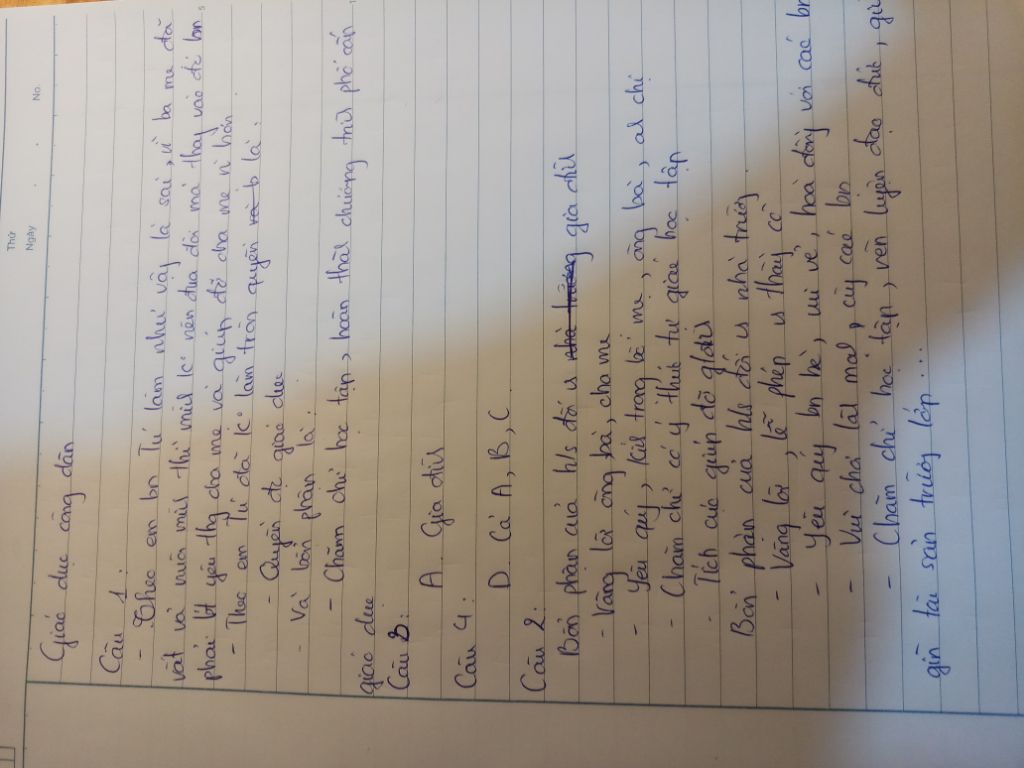 Thứ
Ngày
No.
Giáo dục công dân
Câu 1:
- Theo em bn Tú làm như vậy là sai, vì ba mẹ đã
vất vả nuôi mil thì mil k° nên đua đòi mà thay vào đó bn
phải bt yêu thg cha mẹ và giúp đỡ cha mẹ nì hơn
- Theo em Tú đã k° làm tròn quyền và b là:
- Quyền đc giáo dục
- Và bổn phận là:
- Chăm chỉ học tập, hoàn thàh chương trìh phổ cấp
giáo dục
Câu 3:
A. Gia đìh
Câu 4:
D. Cả A, B, C
Câu 2:
Bổn phận của hls đối vs nhà trường gia đìh
- Vâng lời ông bà, cha mẹ
- Yêu quý, kíh trọng bố mẹ, ông bà, ah chị
- Chăm chỉ có ý thức tự giác học tập
- Tích cực giúp đỡ gđìh
Bổn phận của hls đối vs nhà trường
- Vâng lời, lễ phép vs thầy cô
- Yêu quý bn bè, vui vẻ, hoà đồng với các bn
- Vui chơi làh mạh cùg các bn
- Chăm chỉ học tập, rèn luyện đạo đức, giữ
gìn tài sản trường lớp....